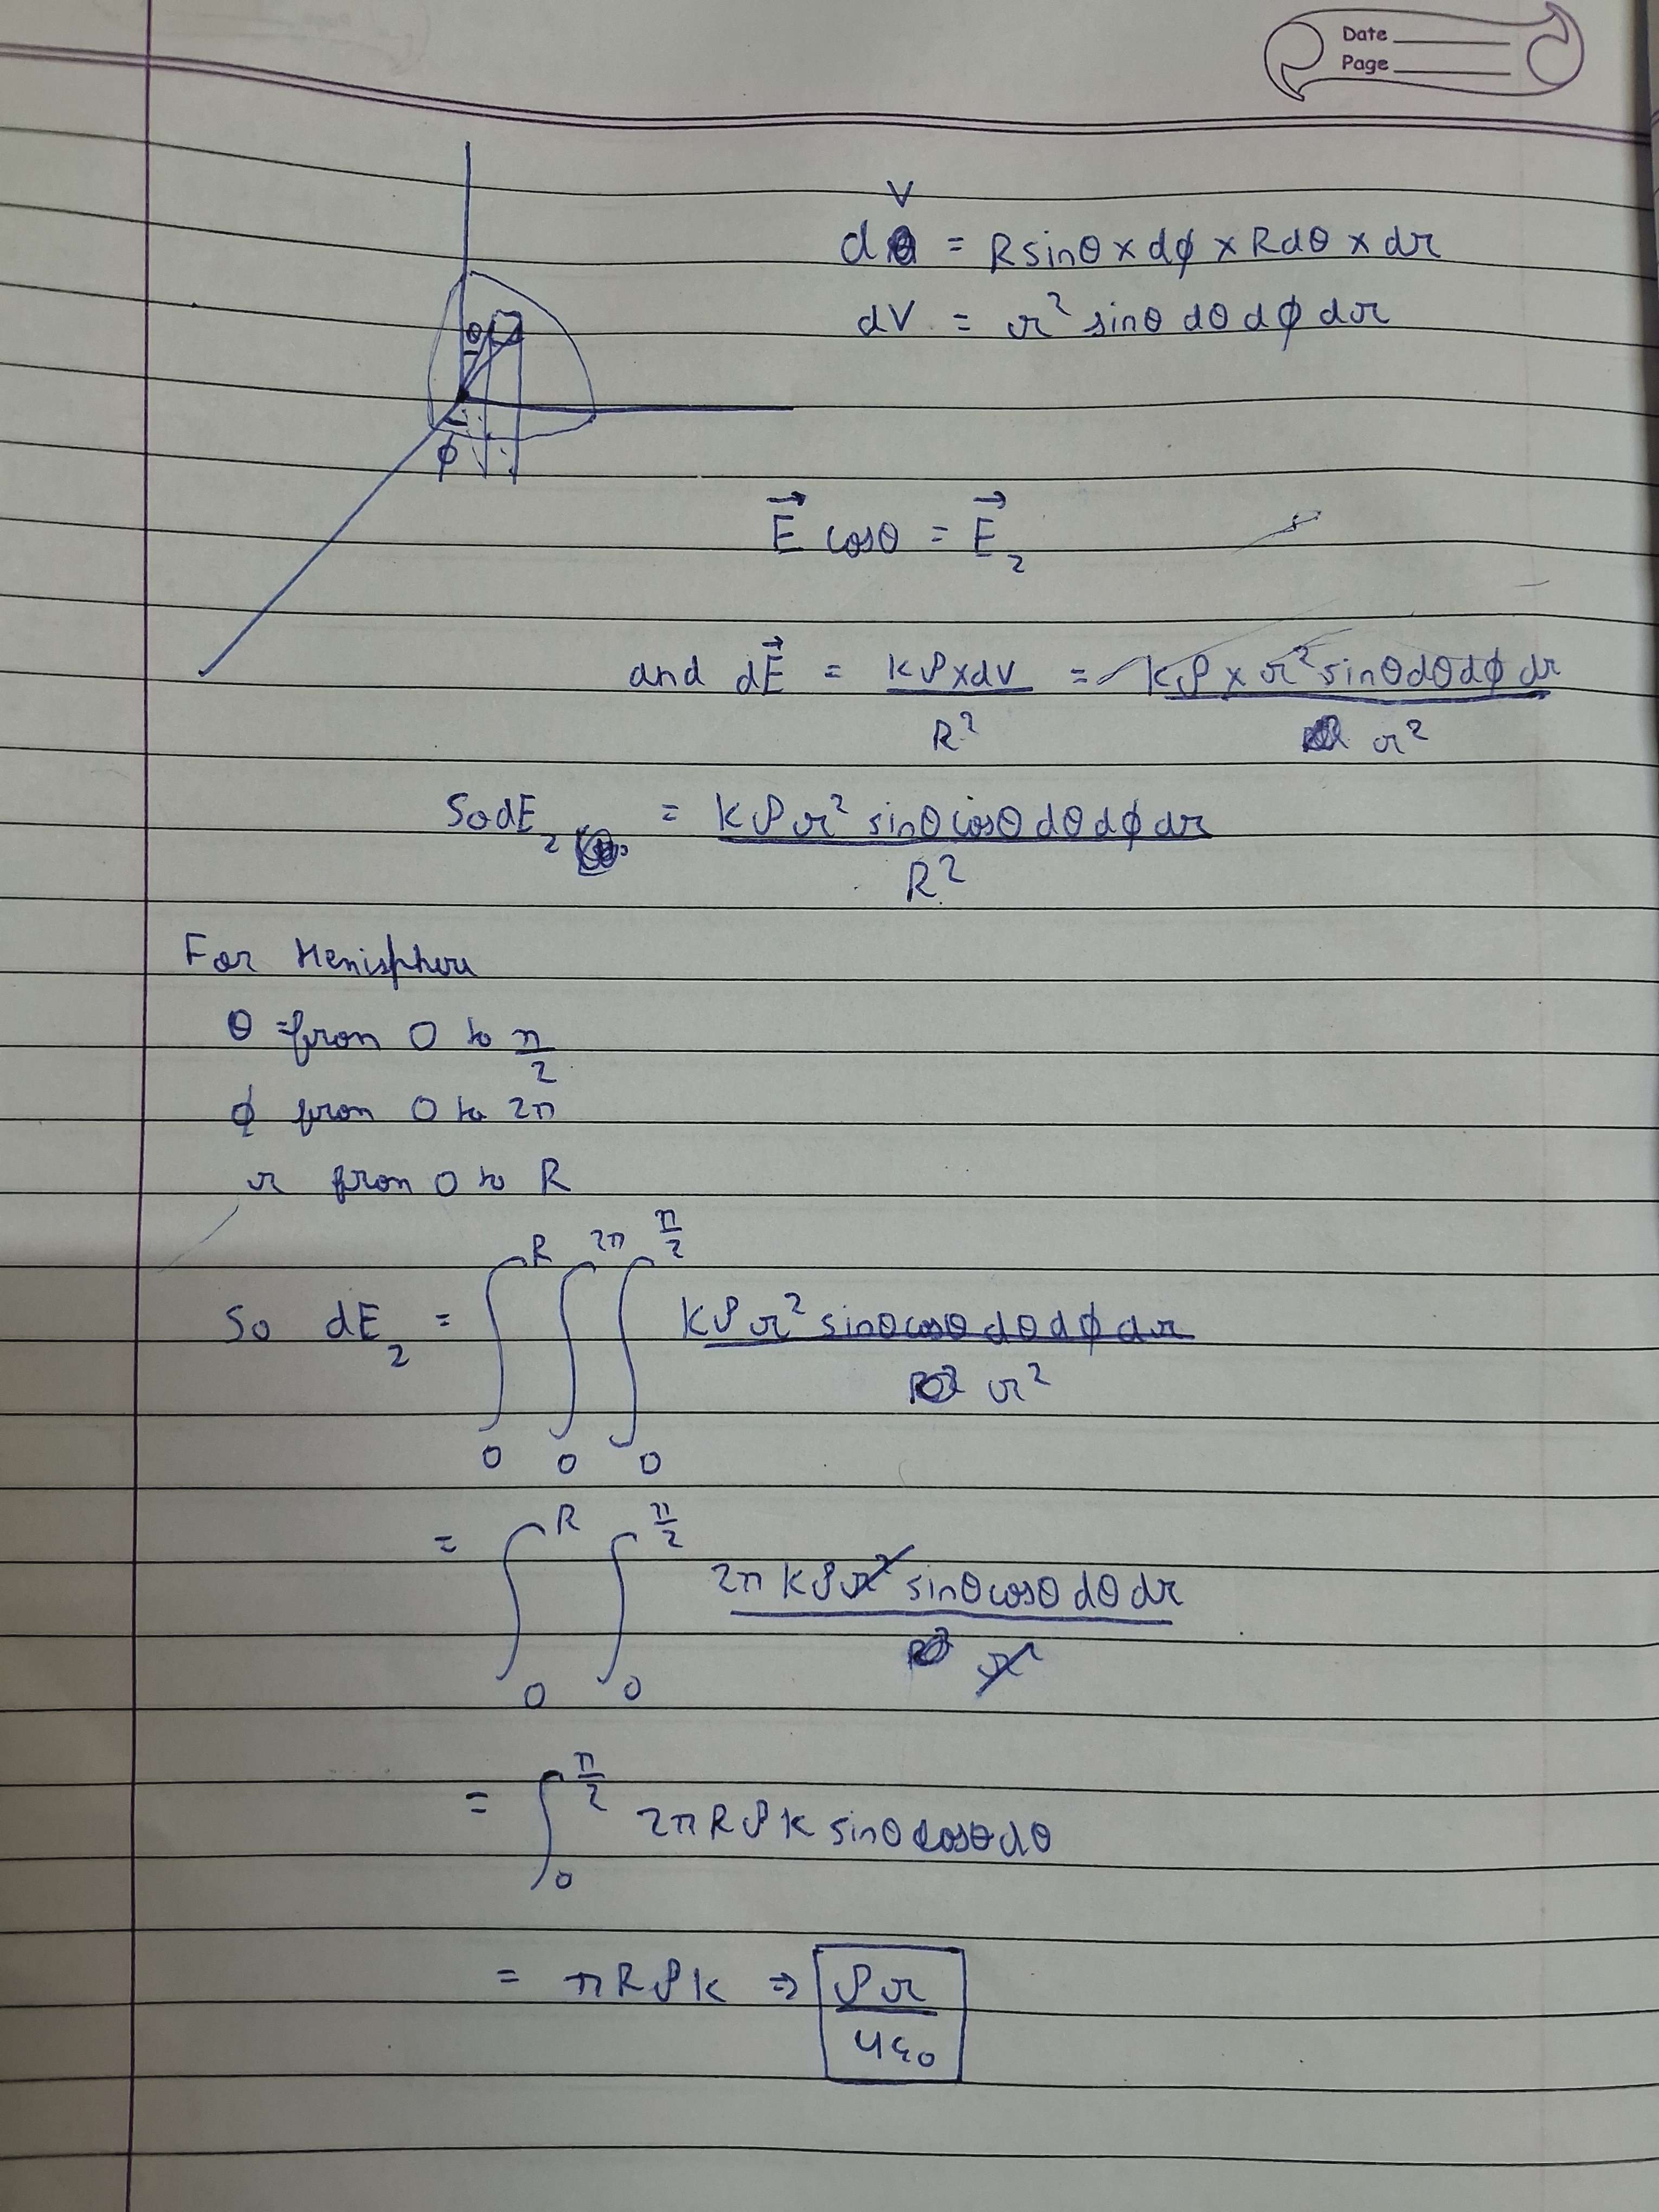 Date
Page
V
d = R sinθ × dϕ × R dθ × dr
dV = r² sinθ dθ dϕ dr
θ
ϕ
E⃗ cosθ = E⃗₂
and dE⃗ = kρ×dv / R² = kρ × r² sinθ dθ dϕ dr / r²
So dE₂ = kρr² sinθ cosθ dθ dϕ dr / R²
For Hemisphere
θ = from 0 to π/2
ϕ from 0 to 2π
r from 0 to R
So dE₂ = ∫₀^R ∫₀^2π ∫₀^π/2 kρr² sinθ cosθ dθ dϕ dr / r²
= ∫₀^R ∫₀^π/2 2π kρr² sinθ cosθ dθ dr / r²
= ∫₀^π/2 2πRρk sinθ cosθ dθ
= πRρk ⇒ ρr / 4ε₀